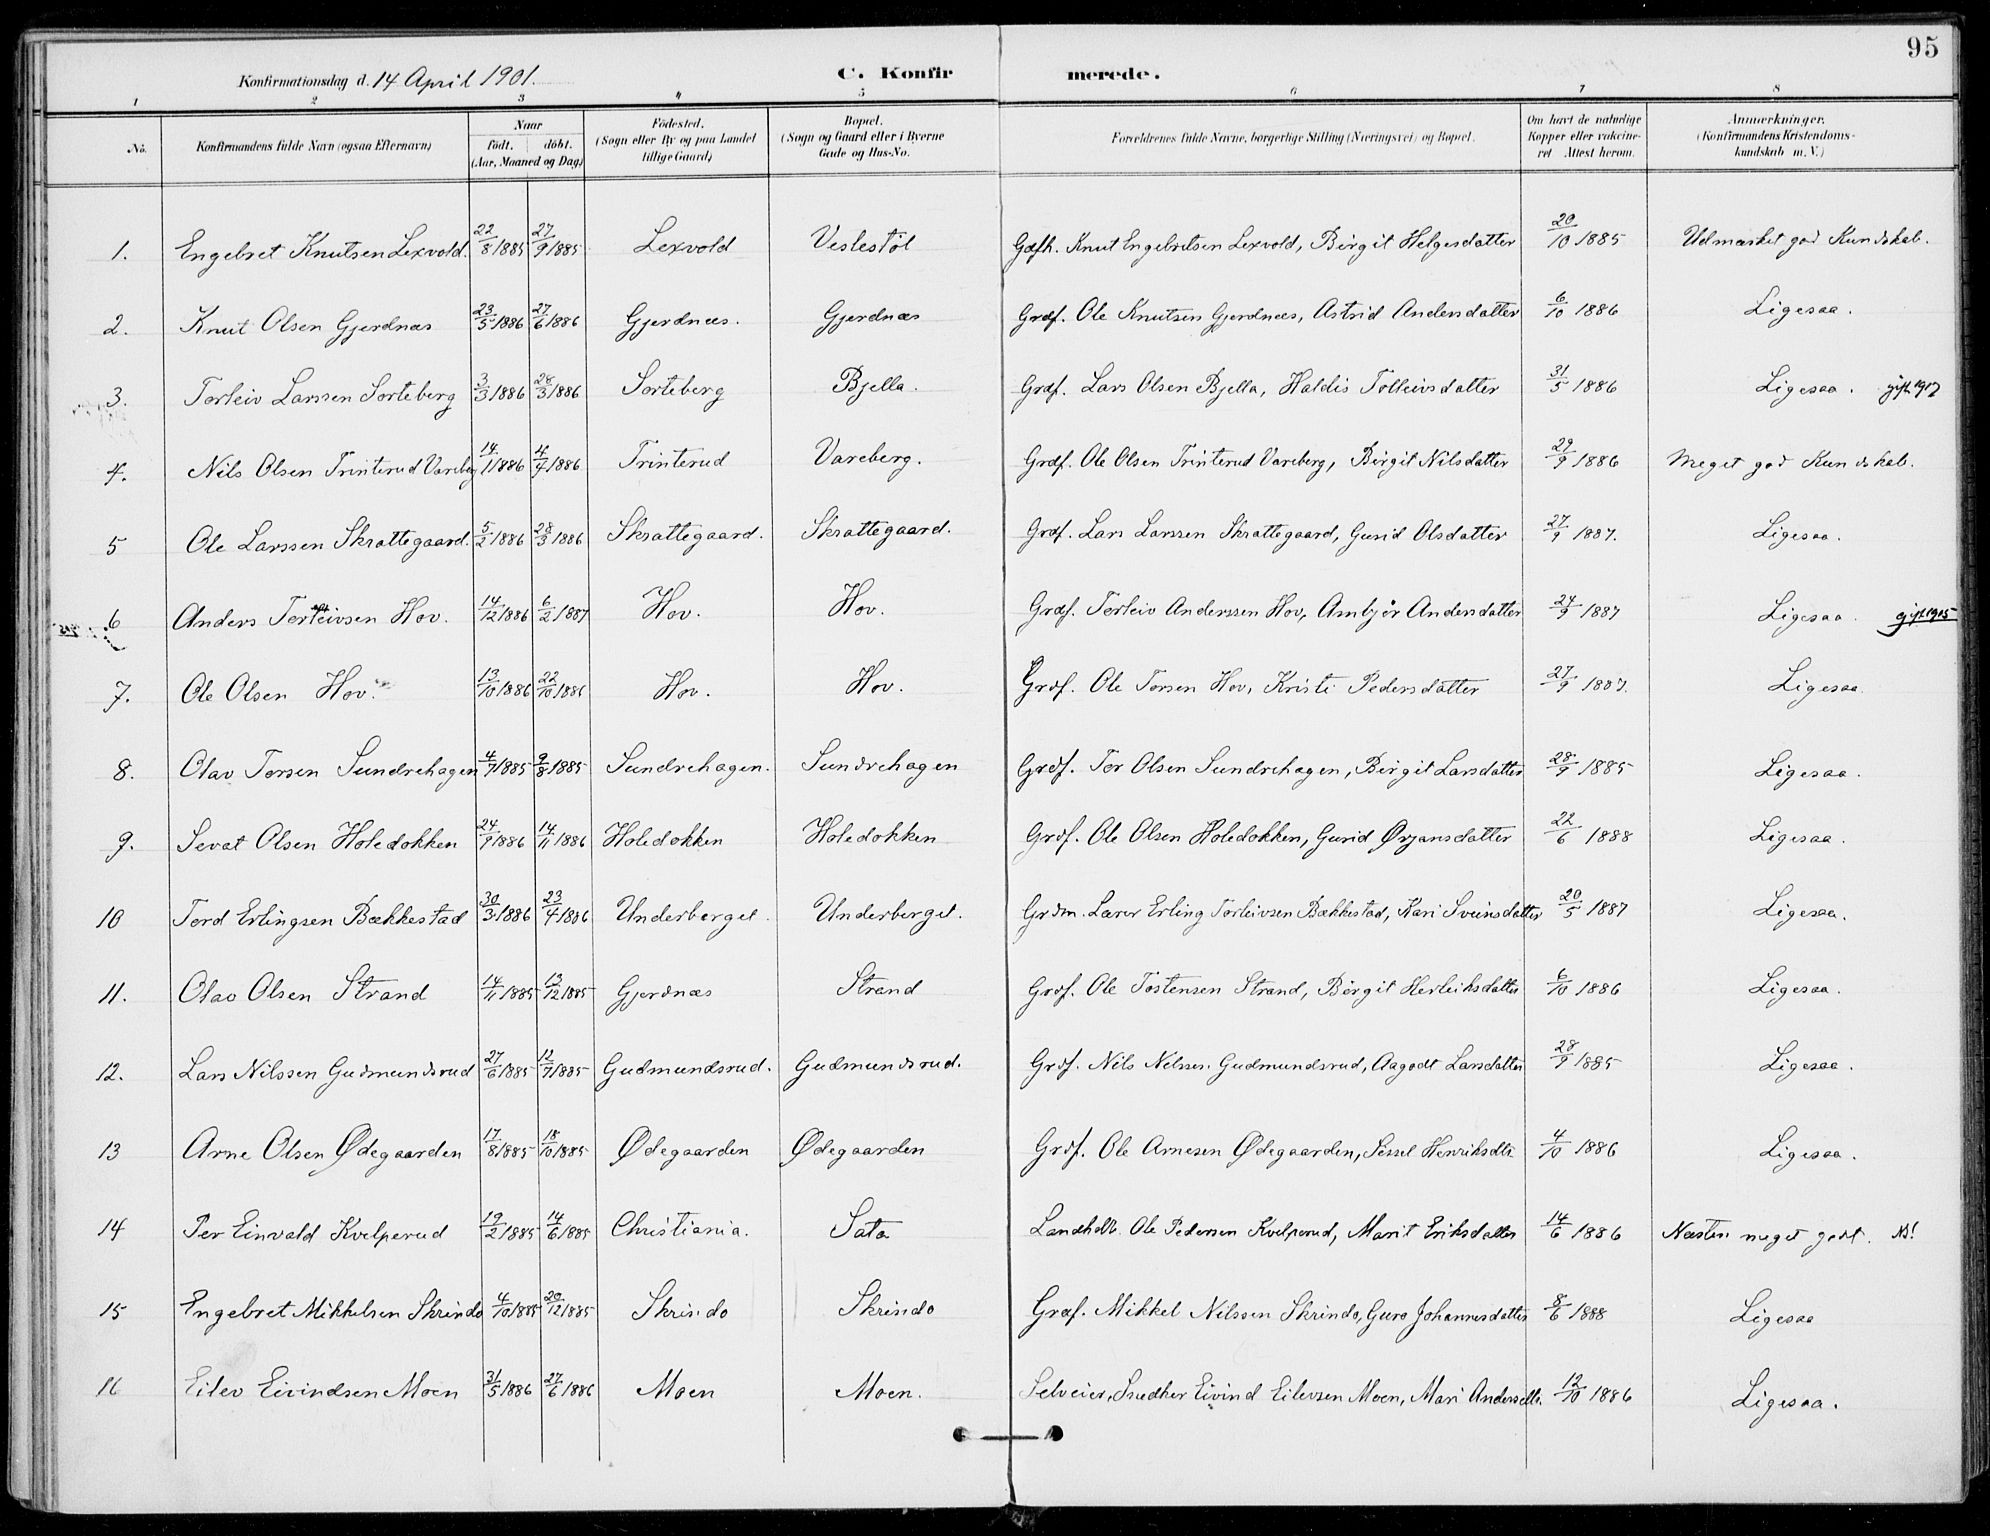 95
Konfirmationsdag d. 14 April 1901.
C. Konfirmerede.
1 2 3 4 5 6 7 8
No. | Konfirmandens fulde Navn (ogsaa Efternavn) | Naar födt. döbt. (Aar, Maaned og Dag) | Födested. (Sogn eller By og paa Landet tillige Gaard) | Bopæl. (Sogn og Gaard eller i Byerne Gade og Hus-No. | Forældrenes fulde Navne, borgerlige Stilling (Næringsvei) og Bopæl. | Om havt de naturlige Kopper eller vakcineret Attest herom. | Anmerkninger. (Konfirmandens Kristendomskundskab m. V.)
1. Engebret Knutsen Lexvold. 22/8 1885 27/9 1885 Lexvold Veslestöl Gdfh. Knut Engebretsen Lexvold, Birgit Helgesdatter 20/10 1885 Udmærket god Kundskab.
2. Knut Olsen Gjerdnæs 23/5 1886 27/6 1886 Gjerdnæs. Gjerdnæs Grdf. Ole Knutsen Gjerdnæs, Astrid Andersdatter 6/10 1886 Ligesaa.
3. Torleiv Larssen Sorteberg 3/3 1886 28/3 1886 Sorteberg Bjella. Grdf. Lars Olsen Bjella, Haldis Tolleivsdatter 31/5 1886 Ligesaa. gift 1917
4. Nils Olsen Trinterud Vareberg 14/1 1886 4/7 1886 Trinterud Vareberg. Grdf. Ole Olsen Trinterud Vareberg, Birgit Nilsdatter 29/9 1886 Meget god Kundskab.
5 Ole Larssen Skrattegaard. 5/2 1886 28/3 1886 Skrattegaard. Skrattegaard. Grdf. Lars Larssen Skrattegaard, Gurid Olsdatter 27/9 1887. Ligesaa.
6 Anders Torleivsen Hov. 14/12 1886 6/2 1887 Hov. Hov. Grdf. Torleiv Anderssen Hov, Ambjör Andersdatter 27/9 1887 Ligesaa. gift 1915
7. Ole Olsen Hov. 13/10 1886 22/10 1886 Hov. Hov. Grdf. Ole Torsen Hov, Kristi Pedersdatter 27/9 1887. Ligesaa.
8. Olav Torsen Sundrehagen 4/7 1885 9/8 1885 Sundrehagen. Sundrehagen Grdf. Tor Olsen Sundrehagen, Birgit Larsdatter 28/9 1885 Ligesaa.
9. Sevat Olsen Holedokken 24/9 1886 14/11 1886 Holedokken Holedokken Grdf. Ole Olsen Holedokken, Gurid Ørjansdatter 22/6 1888 Ligesaa.
10 Tord Erlingsen Bækkestad 30/3 1886 23/4 1886 Underberget. Underberget. Grdm. Lærer Erling Torleivsen Bækkestad, Kari Sveinsdatter 20/5 1887 Ligesaa.
11. Olav Olsen Strand 14/11 1885 13/12 1885 Gjerdnæs Strand Grdf. Ole Tostensen Strand, Birgit Herleiksdatter 6/10 1886 Ligesaa.
12. Lars Nilssen Gudmundsrud 27/6 1885 12/7 1885 Gudmundsrud. Gudmundsrud. Grdf. Nils Nilssen Gudmundsrud, Aagodt Larsdatter 28/9 1885 Ligesaa.
13 Arne Olsen Ødegaarden 17/8 1885 18/10 1885 Ødegaarden Ødegaarden Grdf. Ole Arnesen Ødegaarden, Sissel Henriksdtr 4/10 1886 Ligesaa.
14 Per Einvald Kvelperud 19/2 1885 14/6 1885 Christiania. Sata Landhdl. Ole Pedersen Kvelperud, Marit Eriksdatter 14/6 1886 Næsten meget godt.
15 Engebret Mikkelsen Skrindo 4/10 1885 20/12 1885 Skrindo Skrindo Grdf. Mikkel Nilssen Skrindo, Guro Johannesdatter 8/6 1888 Ligesaa
16 Eilev Eivindsen Moen 31/5 1886 27/6 1886 Moen Moen. Selveier, Snedker Eivind Eilevsen Moen, Mari Andersdtr. 12/10 1886 Ligesaa.